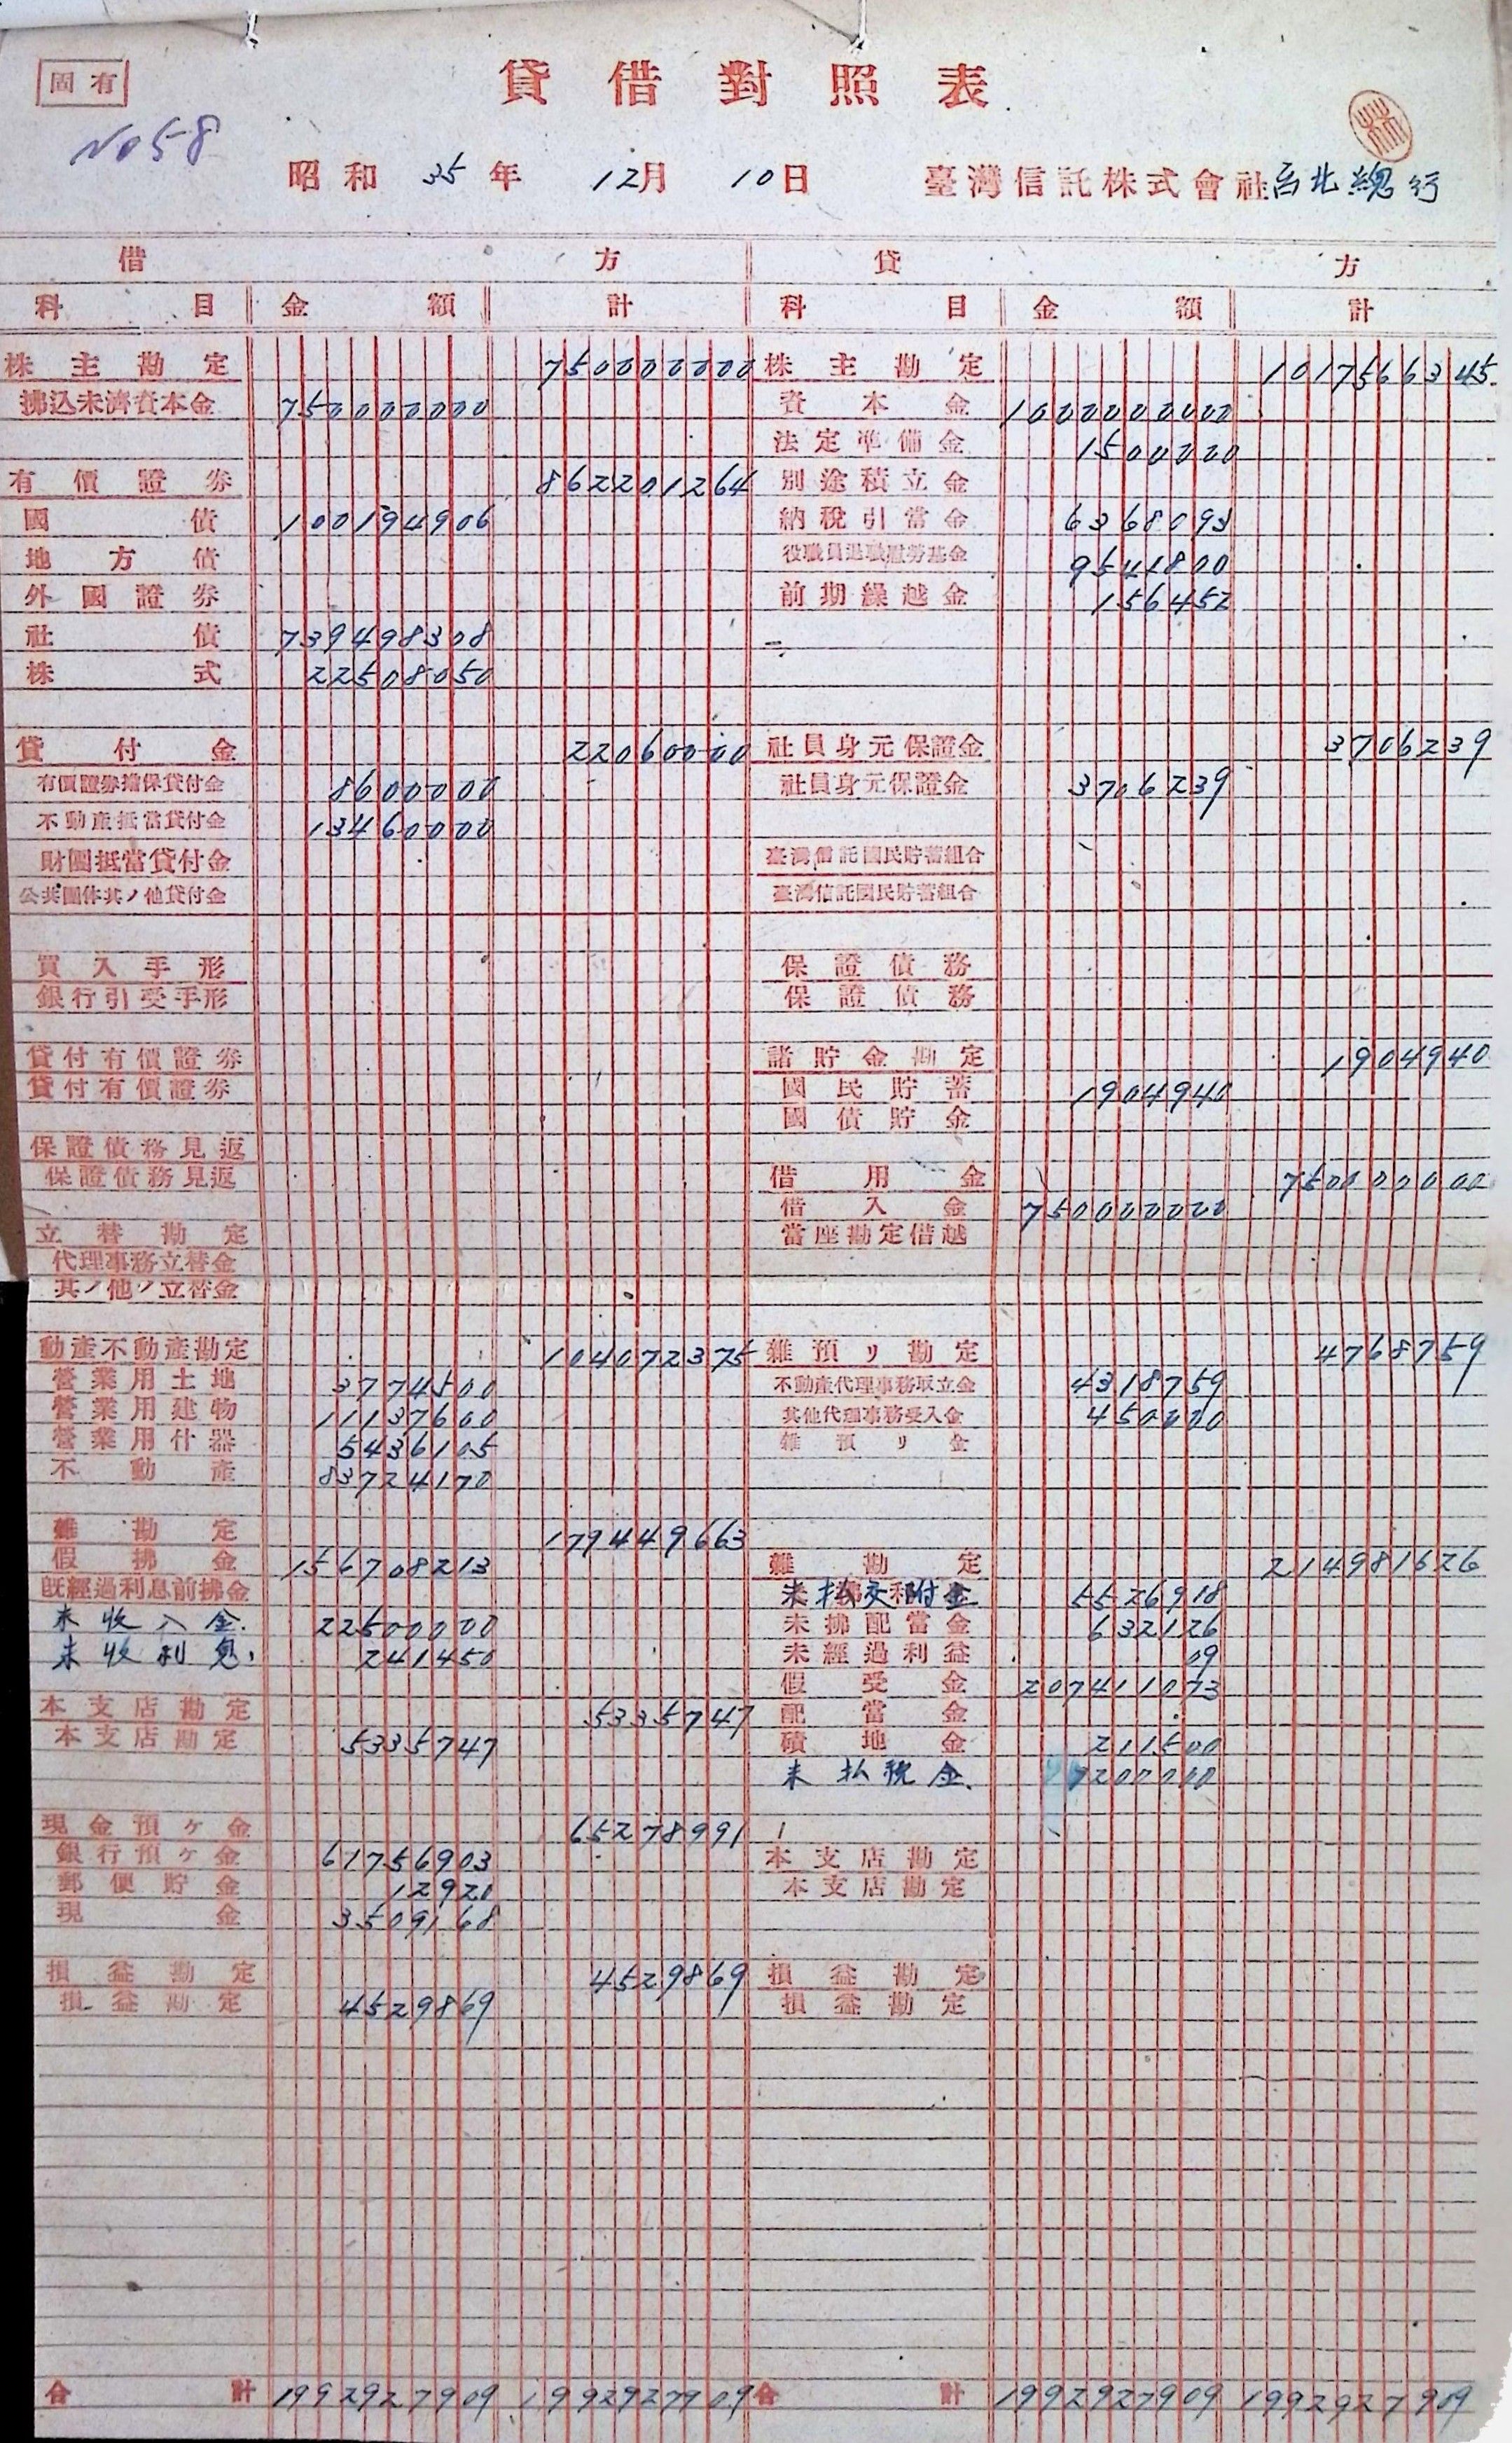 固有
貸借對照表
No58
林
昭和 35 年 12月 10日 臺灣信託株式會社台北總行
借方 貸方
科目 金額 計 科目 金額 計
株主勘定 750000000 株主勘定 1017566345
拂込未濟資本金 750000000 資本金 1000000000
法定準備金 1500000
有價證券 862201264 別途積立金
國債 100194906 納稅引當金 6368093
地方債 役職員退職慰勞基金 9541800
外國證券 前期繰越金 156452
社債 739498308
株式 22508050
貸付金 22060000 社員身元保證金 3706239
有價證券擔保貸付金 8600000 社員身元保證金 3706239
不動產抵當貸付金 13460000
財團抵當貸付金 臺灣信託國民貯蓄組合
公共團体其ノ他貸付金 臺灣信託國民貯蓄組合
買入手形 保證債務
銀行引受手形 保證債務
貸付有價證券 諸貯金勘定 1904940
貸付有價證券 國民貯蓄 1904940
國債貯金
保證債務見返
保證債務見返 借用金 750000000
借入金 750000000
立替勘定 當座勘定借越
代理事務立替金
其ノ他ノ立替金
動產不動產勘定 104072375 雜預リ勘定 4768759
營業用土地 3774500 不動產代理事務取立金 4318759
營業用建物 11137600 其他代理事務受入金 450000
營業用什器 5436105 雜預リ金
不動產 83724170
雜勘定 179449663
假拂金 156708213 雜勘定 214981626
既經過利息前拂金 未払交附金 5526918
未收入金. 22500000 未拂配當金 632126
未收利息. 241450 未經過利益 09
假受金 207411073
本支店勘定 5335747 配當金
本支店勘定 5335747 積地金 211500
未払稅金. 1200000
現金預ヶ金 65278991
銀行預ヶ金 61756903 本支店勘定
郵便貯金 12920 本支店勘定
現金 3509168
損益勘定 4529869 損益勘定
損益勘定 4529869 損益勘定
合計 1992927909 1992927909 合計 1992927909 1992927909